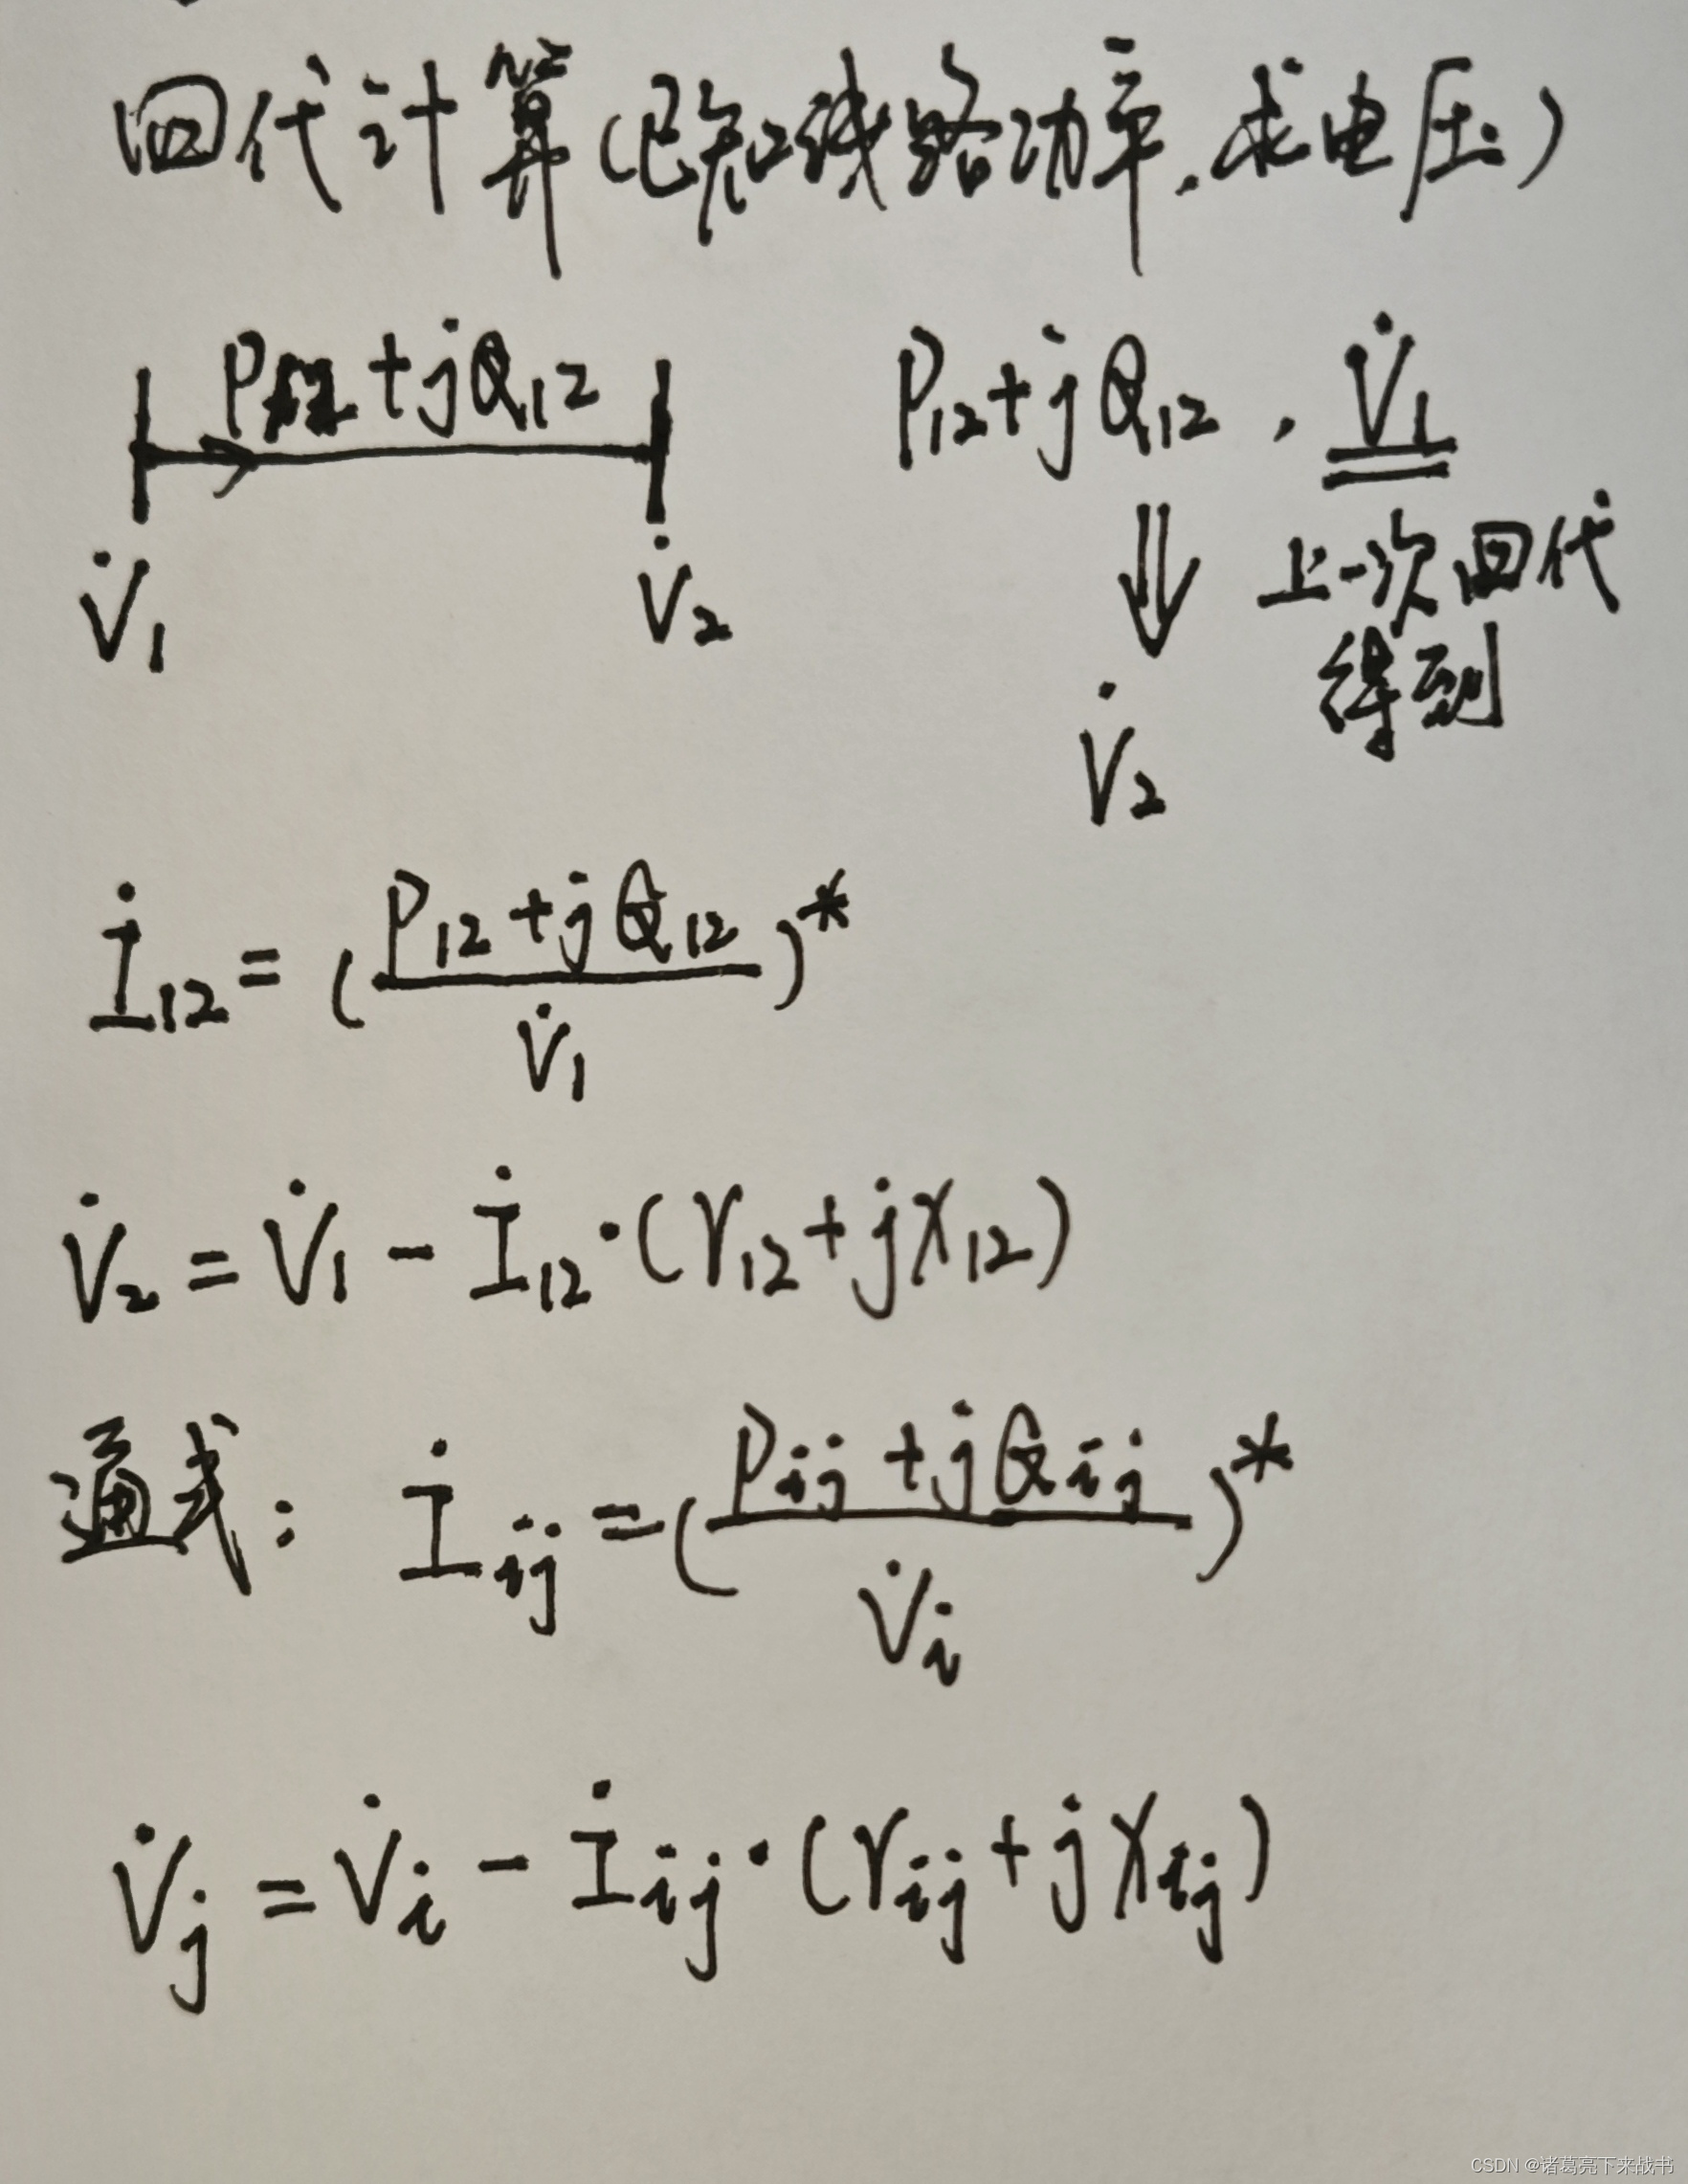 回代计算(已知线路功率,求电压)
P₁₂+jQ₁₂
V̇₁
V̇₂
P₁₂+jQ₁₂, V̇₁
⇓
上一次回代
得到
V̇₂
İ₁₂=((P₁₂+jQ₁₂)/V̇₁)*
V̇₂=V̇₁-İ₁₂·(r₁₂+jx₁₂)
通式: İᵢⱼ=((Pᵢⱼ+jQᵢⱼ)/V̇ᵢ)*
V̇ⱼ=V̇ᵢ-İᵢⱼ·(rᵢⱼ+jxᵢⱼ)
CSDN @诸葛亮下来战书